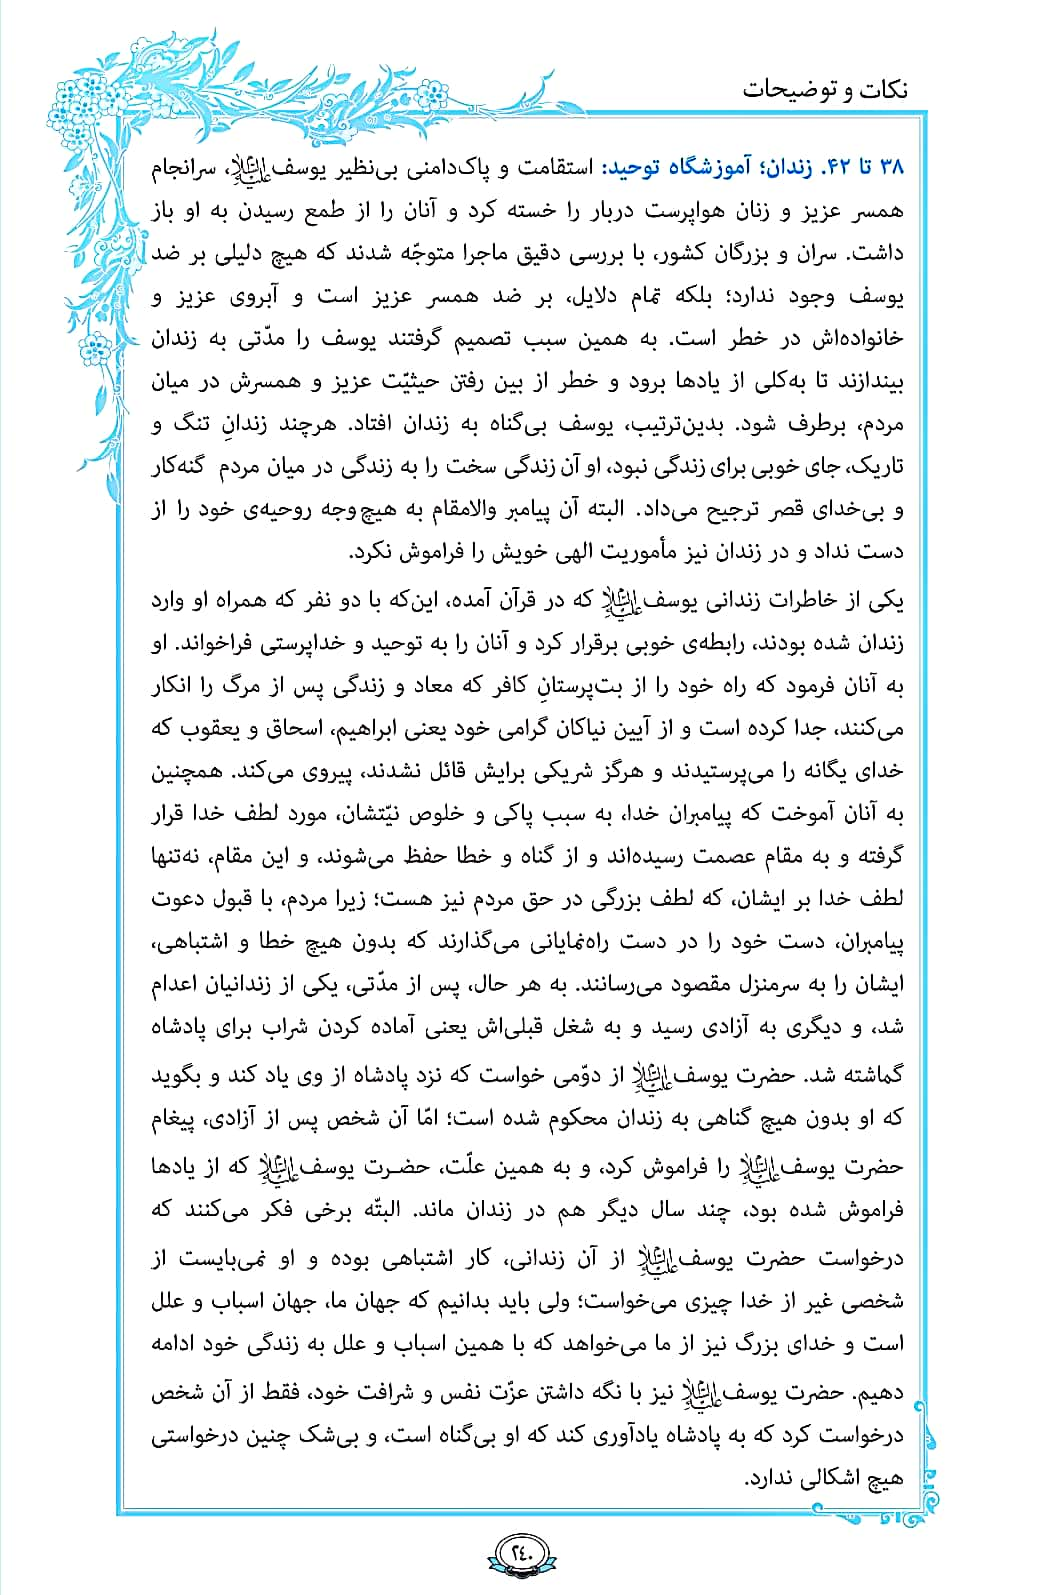 نکات و توضیحات
۳۸ تا ۴۲. زندان؛ آموزشگاه توحید: استقامت و پاک‌دامنی بی‌نظیر یوسف علیه‌السلام، سرانجام
همسر عزیز و زنان هواپرست دربار را خسته کرد و آنان را از طمع رسیدن به او باز
داشت. سران و بزرگان کشور، با بررسی دقیق ماجرا متوجّه شدند که هیچ دلیلی بر ضد
یوسف وجود ندارد؛ بلکه تمام دلایل، بر ضد همسر عزیز است و آبروی عزیز و
خانواده‌اش در خطر است. به همین سبب تصمیم گرفتند یوسف را مدّتی به زندان
بیندازند تا به‌کلی از یادها برود و خطر از بین رفتن حیثیّت عزیز و همسرش در میان
مردم، برطرف شود. بدین‌ترتیب، یوسف بی‌گناه به زندان افتاد. هرچند زندانِ تنگ و
تاریک، جای خوبی برای زندگی نبود، او آن زندگی سخت را به زندگی در میان مردم گنه‌کار
و بی‌خدای قصر ترجیح می‌داد. البته آن پیامبر والامقام به هیچ‌وجه روحیه‌ی خود را از
دست نداد و در زندان نیز مأموریت الهی خویش را فراموش نکرد.
یکی از خاطرات زندانی یوسف علیه‌السلام که در قرآن آمده، این‌که با دو نفر که همراه او وارد
زندان شده بودند، رابطه‌ی خوبی برقرار کرد و آنان را به توحید و خداپرستی فراخواند. او
به آنان فرمود که راه خود را از بت‌پرستانِ کافر که معاد و زندگی پس از مرگ را انکار
می‌کنند، جدا کرده است و از آیین نیاکان گرامی خود یعنی ابراهیم، اسحاق و یعقوب که
خدای یگانه را می‌پرستیدند و هرگز شریکی برایش قائل نشدند، پیروی می‌کند. همچنین
به آنان آموخت که پیامبران خدا، به سبب پاکی و خلوص نیّتشان، مورد لطف خدا قرار
گرفته و به مقام عصمت رسیده‌اند و از گناه و خطا حفظ می‌شوند، و این مقام، نه‌تنها
لطف خدا بر ایشان، که لطف بزرگی در حق مردم نیز هست؛ زیرا مردم، با قبول دعوت
پیامبران، دست خود را در دست راه‌نمایانی می‌گذارند که بدون هیچ خطا و اشتباهی،
ایشان را به سرمنزل مقصود می‌رسانند. به هر حال، پس از مدّتی، یکی از زندانیان اعدام
شد، و دیگری به آزادی رسید و به شغل قبلی‌اش یعنی آماده کردن شراب برای پادشاه
گماشته شد. حضرت یوسف علیه‌السلام از دوّمی خواست که نزد پادشاه از وی یاد کند و بگوید
که او بدون هیچ گناهی به زندان محکوم شده است؛ امّا آن شخص پس از آزادی، پیغام
حضرت یوسف علیه‌السلام را فراموش کرد، و به همین علّت، حضـرت یوسف علیه‌السلام که از یادها
فراموش شده بود، چند سال دیگر هم در زندان ماند. البتّه برخی فکر می‌کنند که
درخواست حضرت یوسف علیه‌السلام از آن زندانی، کار اشتباهی بوده و او نمی‌بایست از
شخصی غیر از خدا چیزی می‌خواست؛ ولی باید بدانیم که جهان ما، جهان اسباب و علل
است و خدای بزرگ نیز از ما می‌خواهد که با همین اسباب و علل به زندگی خود ادامه
دهیم. حضرت یوسف علیه‌السلام نیز با نگه داشتن عزّت نفس و شرافت خود، فقط از آن شخص
درخواست کرد که به پادشاه یادآوری کند که او بی‌گناه است، و بی‌شک چنین درخواستی
هیچ اشکالی ندارد.
۲۴۰